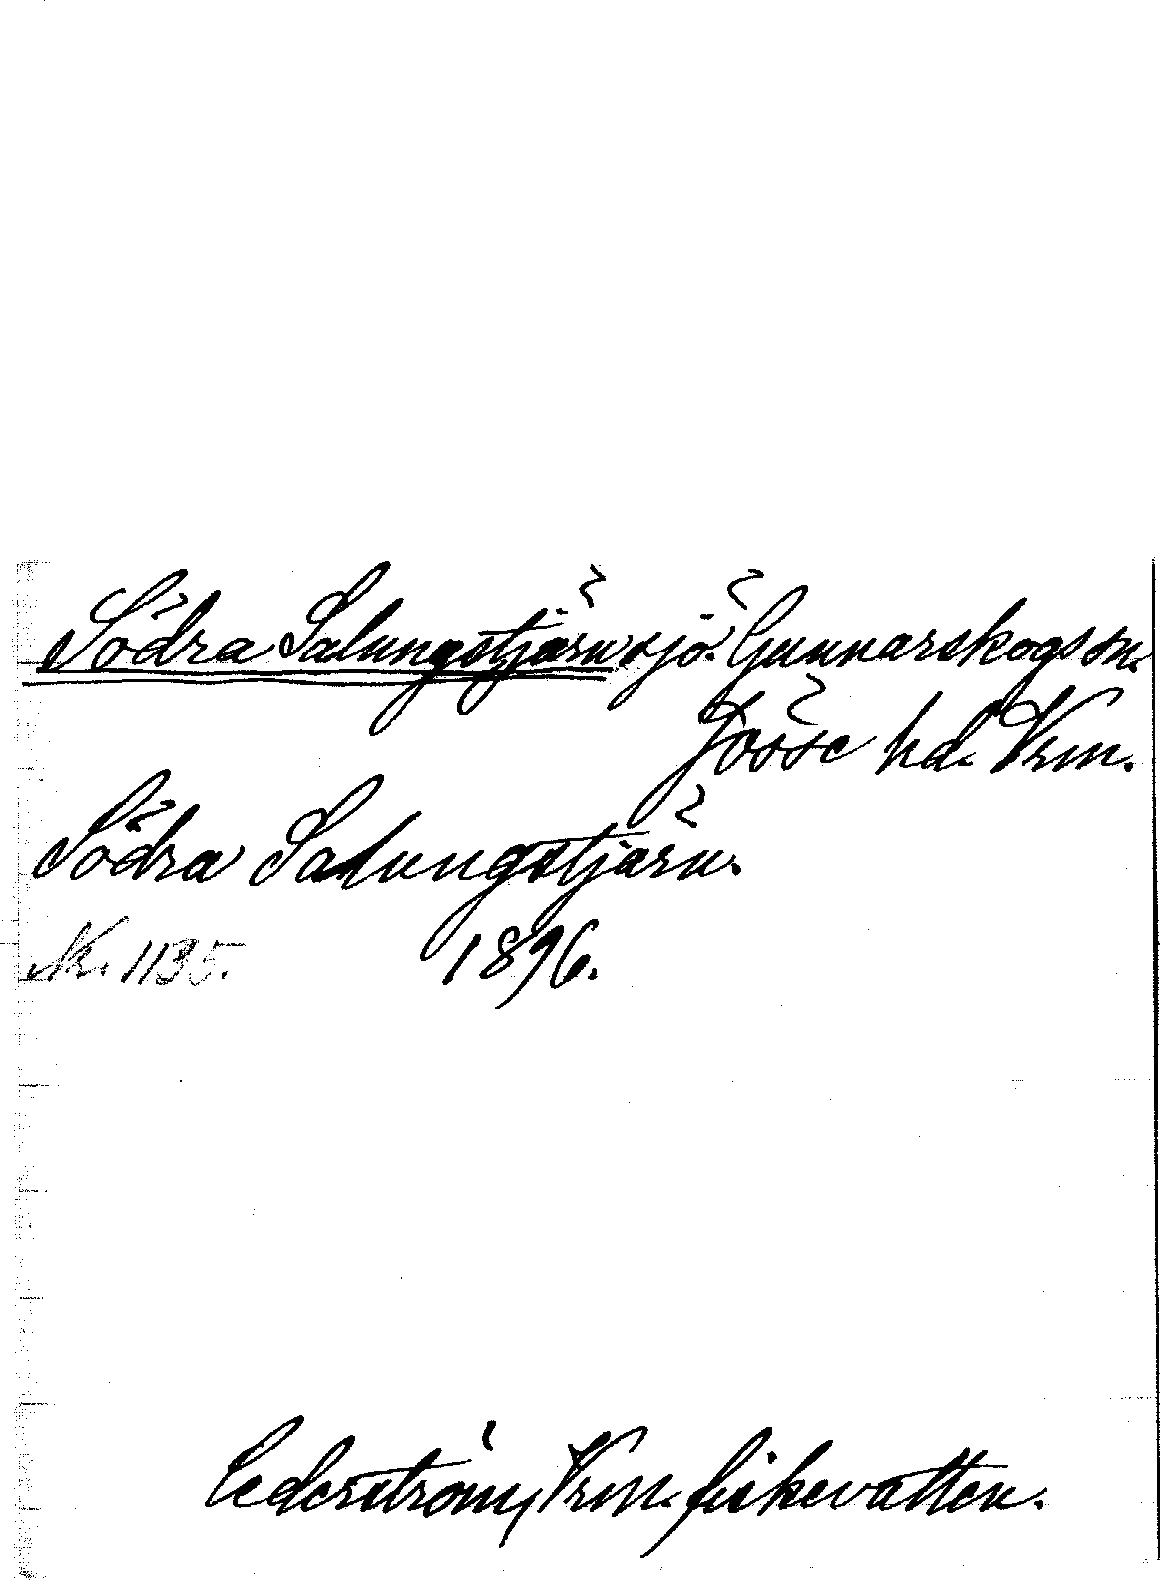 Södra Salungstjärn sjö. Gunnarskogs sn.
Jösse hd. Vrm.
Södra Salungstjärn.
Nr. 1135. 1896.
Cederström, Vrm. fiskevatten.